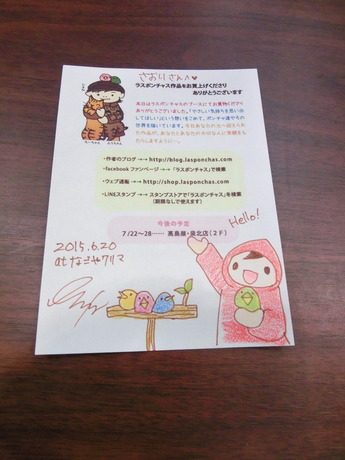 さおりさんへ♡
ラスポンチャス作品をお買上げくださり
ありがとうございます
本日はラスポンチャスのブースにてお買物くださり
ありがとうございました。「やさしい気持ちを思い出
してほしい」という想いをこめて、ポンチャ達でその
世界を描いています。今日あなたの元へ迎えられ
た作品が、あなたとあなたの大切な人に笑顔をも
たらしますように…。
・作者のブログ →→ http://blog.lasponchas.com
・facebook ファンページ →→「ラスポンチャス」で検索
・ウェブ通販 →→ http://shop.lasponchas.com
・LINEスタンプ →→ スタンプストアで「ラスポンチャス」を検索
(期限なしで使えます)
今後の予定
7/22〜28…… 高島屋・泉北店(2F)
Hello!
2015.6.20